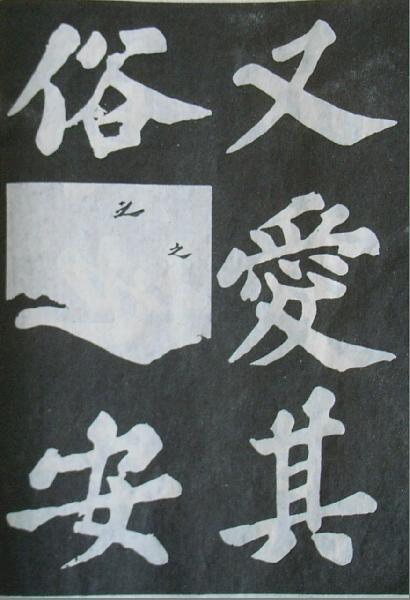 又愛其
俗安
之之